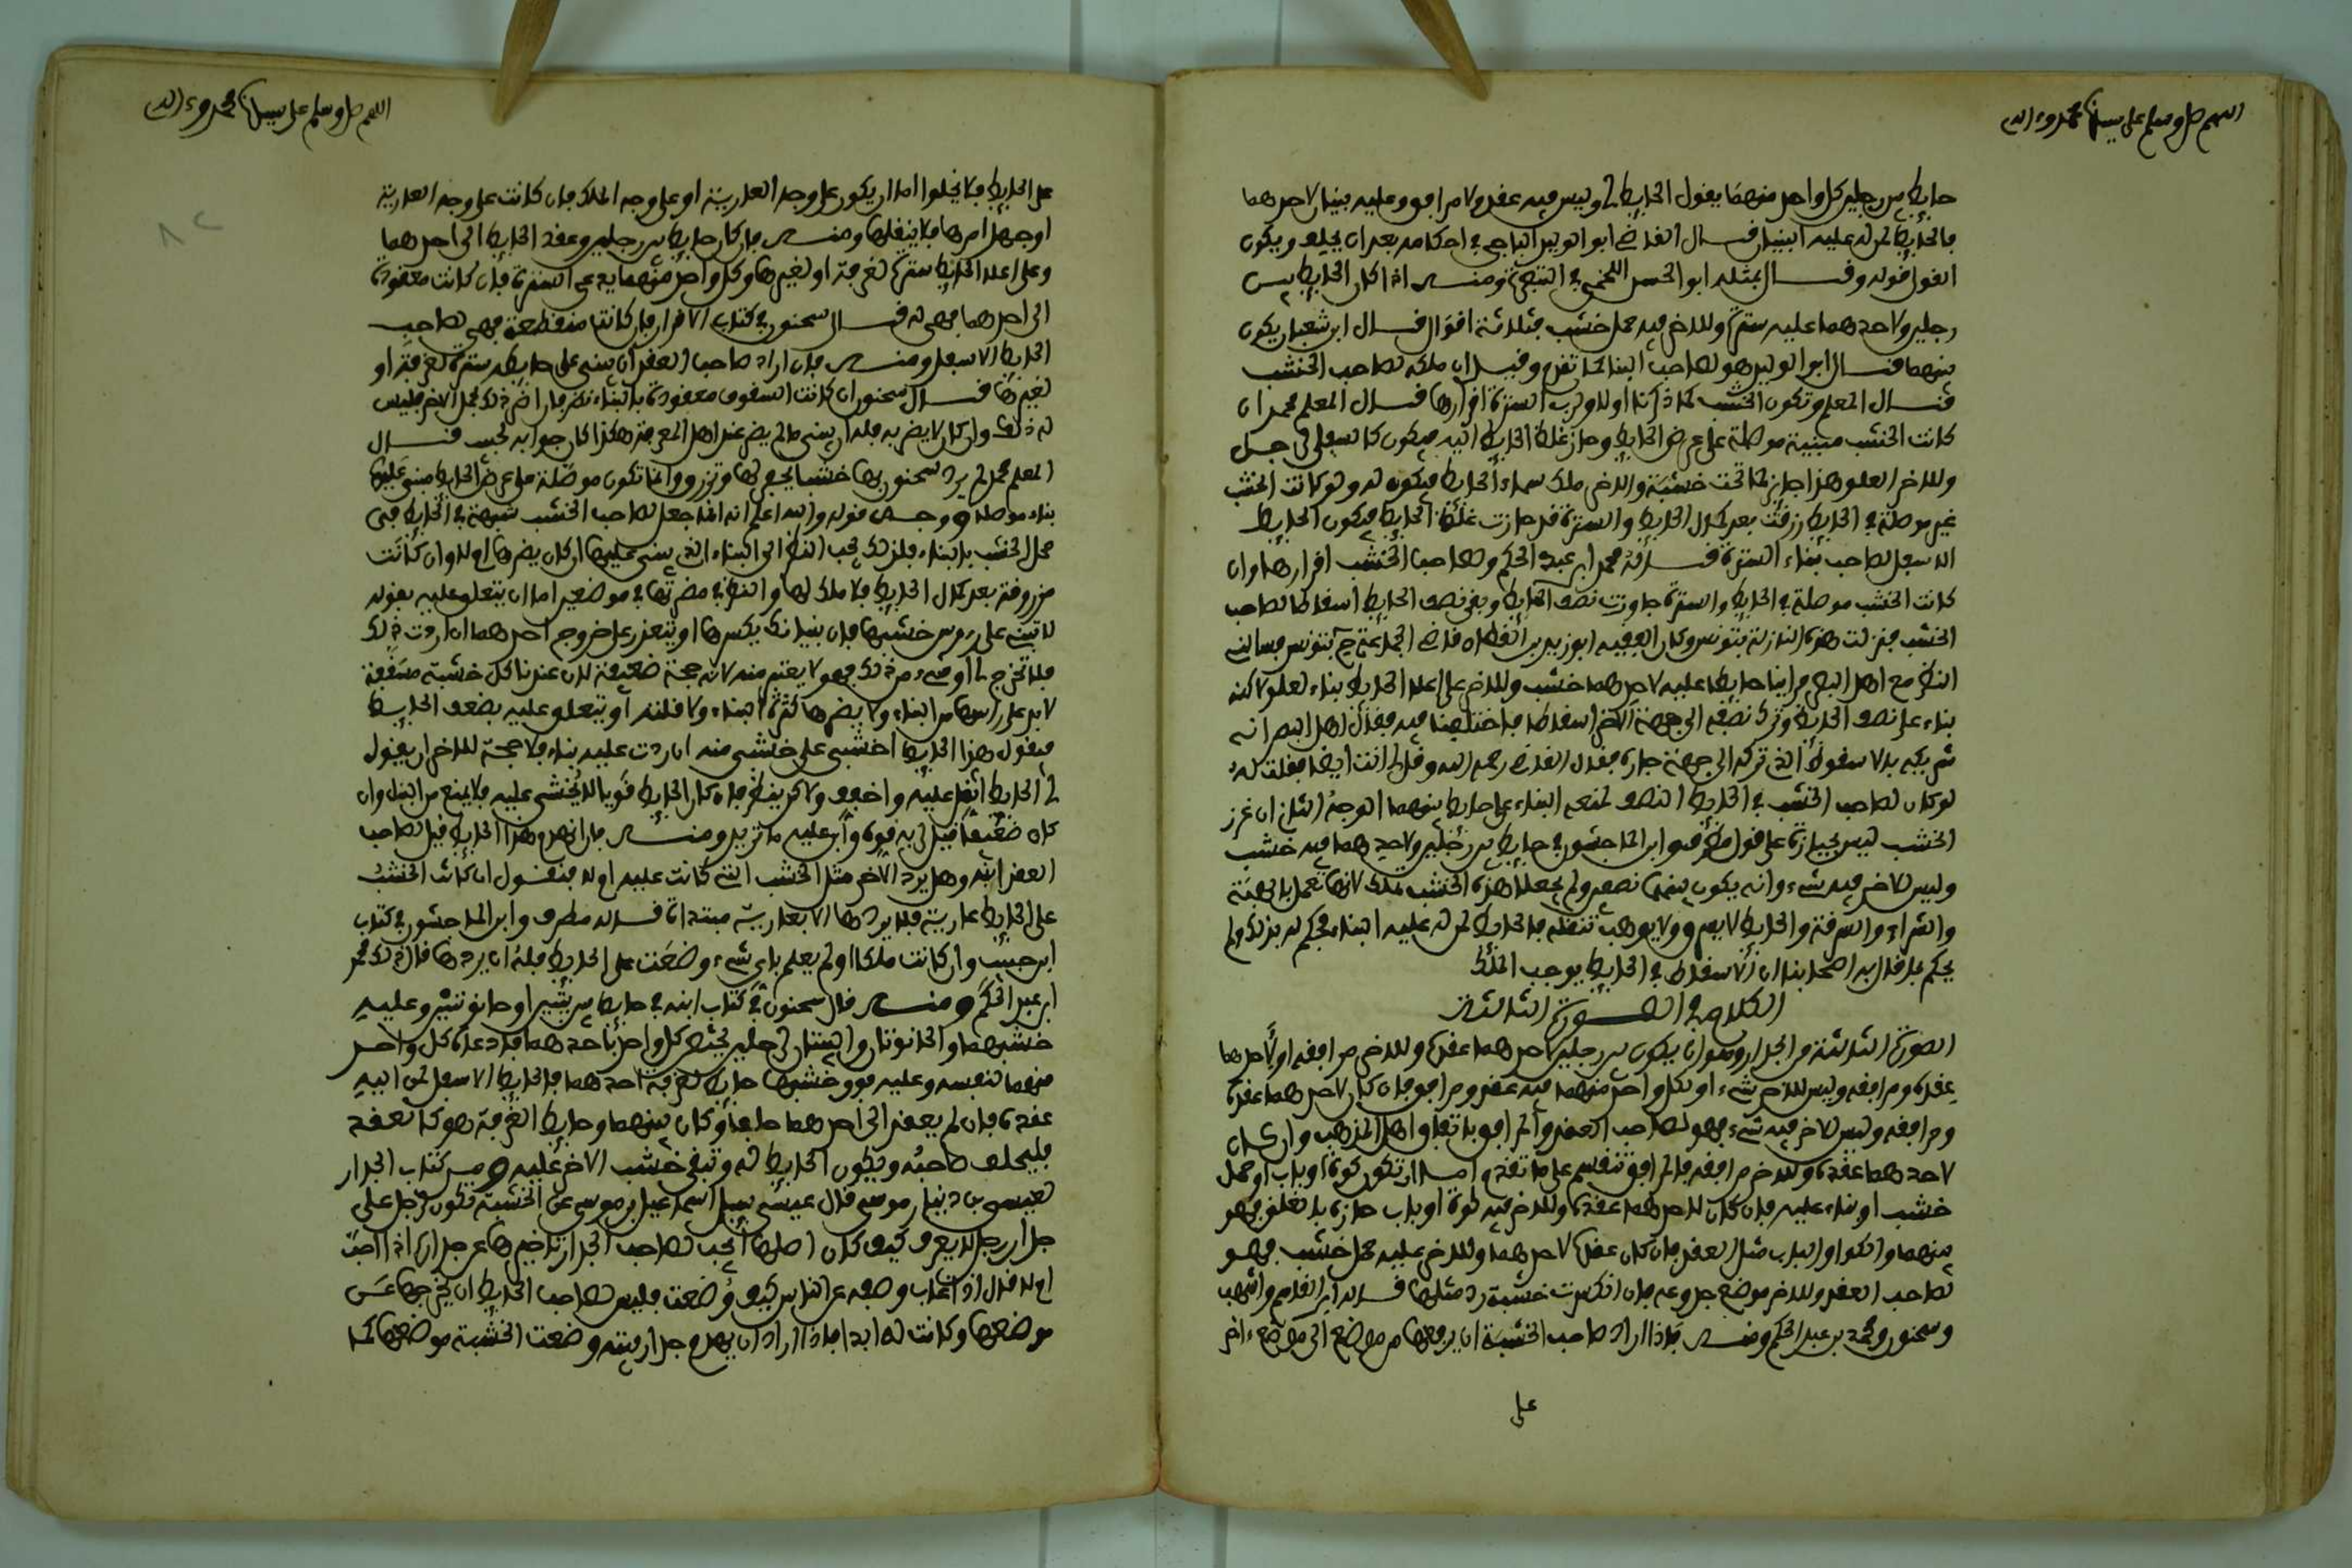 اللهم صل وسلم على سيدنا محمد وءاله
حايط بين رجلين كل واحد منهما يقول الحايط لي وليس فيه عقد ولا مرافق وعليه بنيان لاحدهما
فالحايط لمن له عليه البنيان قال القاضي ابو الوليد الباجي في احكامه بعد ان يحلف ويكون
القول قوله وقال بمثله ابو الحسن اللخمي في التبصرة ومنه اذا كان الحايط بين
رجلين ولاحدهما عليه سترة وللاخر فيه حمل خشب فثلاثة اقوال قال ابن شعبان يكون
بينهما قال ابو الوليد هو لصاحب البناء كما تقدم وقيل ان ملكه لصاحب الخشب
قال المعلم وتكون الخشب كما ذكرنا اولا ولرب السترة اقرارها قال المعلم محمد ان
كانت الخشب مبنية موصلة على عرض الحايط وحاز غلظ الحايط اليه فيكون كالسفل لرجل
وللاخر العلو هذا جايز كما تحت خشبة والاخر ملك سماء الحايط فيكون له ولو كانت الخشب
غير موصلة في الحايط زرقت بعد كمال الحايط والسترة قد حازت غلظ الحايط فيكون الحايط
الاسفل لصاحب بناء السترة قاله محمد ابن عبد الحكم ولصاحب الخشب اقرارها وان
كانت الخشب موصلة في الحايط والسترة جاوزت نصف الحايط وبقي نصف الحايط اسقاطا لصاحب
الخشب فنزلت هذه النازلة بتونس وكان الفقيه ابو زيد بن القطان قاضي الجماعة بتونس فسالني
النظر مع اهل البصر فراينا حايطا عليه لاحدهما خشب وللاخر على اعلا الحايط بناء لعلو لاكنه
بناء على نصف الحايط وترك نصفه الى جهة الاخر اسقاطا فاختلفنا فيه فقال اهل البصر انه
شريكه بالاسقوط الذي تركه الى جهة جاره فقال القاضي رحمه الله وقال انت ايضا فقلت له
لو كان لصاحب الخشب في الحايط النصف لمنعه البناء على حايط بينهما الوجه الثاني ان غرز
الخشب ليس بحيازة على قول مطرف وابن الماجشون في حايط بين رجلين ولاحدهما فيه خشب
وليس للاخر فيه شيء وانه يكون بينهما نصفين ولم يجعلا هذه الخشب ملكا لانها تعمل بالهبة
والشراء والسرقة والحايط لا يسرق ولا يوهب تنقله فالحايط لمن له عليه البناء فحكم له بذلك ولم
يحكم بما قال به اصحابنا ان الاسقاط في الحايط يوجب الملك
الكلام في الصورة الثالثة
الصورة الثالثة من الجدار وهو ان يكون بين رجلين لاحدهما عقده وللاخر مرافقه او لاحدهما
عقده ومرافقه وليس للاخر شيء او لكل واحد منهما فيه عقد ومرافق فان كان لاحدهما عقده
ومرافقه وليس للاخر فيه شيء فهو لصاحب العقد والمرافق باتفاق اهل المذهب وان كان
لاحدهما عقده وللاخر مرافقه فالمرافق تنقسم على ما تقدم اما ان تكون كوة او باب او حمل
خشب او بناء عليه فان كان لاحدهما عقده وللاخر فيه كوة او باب حازه بالغلق فهو
بينهما والكوا والباب مثل العقد فان كان عقده لاحدهما وللاخر عليه حمل خشب فهو
لصاحب العقد وللاخر موضع جذوعه فان انكسرت خشبة رد مثلها قاله ابن القاسم واشهب
وسحنون ومحمد بن عبد الحكم ومنه فاذا اراد صاحب الخشبة ان يرفعها من موضع الى موضع ءاخر
على
اللهم صل وسلم على سيدنا محمد وءاله
على الحايط فلا يخلوا اما ان يكون على وجه العارية او على وجه الملك فان كانت على وجه العارية
او جهل امرها فلا ينقلها ومنه فان كان حايط بين رجلين وعقد الحايط الى احدهما
وعلى اعلا الحايط سترة لغرفة او لغيرها وكل واحد منهما يدعي السترة فان كانت معقودة
الى احدهما فهي له قال سحنون في كتاب الاقرار فان كانت منقطعة فهي لصاحب
الحايط الاسفل ومنه فان اراد صاحب العقد ان يبني على حايطه سترة لغرفة او
لغيرها قال سحنون ان كانت السقوف معقودة بالبناء نظر فان اضر ذلك بحمل الاخر فليس
له ذلك وان كان لا يضر به فله ان يبني ما لم يضر عند اهل المعرفة هكذا كان جوابه لحبيب قال
المعلم محمد لم يرد سحنون بها خشبا يحفر لها وتزرق وانما تكون موصلة على عرض الحايط مبني عليها
بناء موصلا ووجه قوله والله اعلم انه انما جعل لصاحب الخشب شبهة في الحايط فبنى
حمل الخشب بالبناء فلذلك يجب النظر الى البناء الذي يبني عليها ان كان يضرها ام لا وان كانت
مزروقة بعد كمال الحايط فلا ملك لها والنظر في مضرتها في موضعين اما ان يتعلق عليه بقوله
لا تبنه على روس خشبها فان بنيانك يكسرها او يتعذر على خروج احدهما ان اردت ذلك
فلا تخرج لي او شيء من ذلك فهو لا يعتبر منه لانه حجة ضعيفة لان عندنا كل خشبة مسقفة
لا بد على راسها من البناء ولا يضرها كثرة البناء ولا قلته او يتعلق عليه بضعف الحايط
فيقول هذا الحايط اخشى على خشبي منه ان اردت عليه بناء فلا حجة للاخر ان يقول
لي الحايط اثقل عليه واخفف ولاكن ينظر فان كان الحايط قويا لا يخشى عليه فلا يمنع من البنا وان
كان ضعيفا قيل لربه قوه وابن عليه ما تريد ومنه فان انهدم هذا الحايط قيل لصاحب
العقد ابنه وهل يرد الاخر مثل الخشب التي كانت عليه ام لا فنقول ان كانت الخشب
على الحايط عارية فلا يردها الا بعارية مبتداة قاله مطرف وابن الماجشون في كتاب
ابن حبيب وان كانت ملكا او لم يعلم باي شيء وضعت على الحايط فله ان يردها قال ذلك محمد
ابن عبد الحكم ومنه قال سحنون في كتاب ابنه في حايط بين بيتين او حانوتين وعليه
خشبهما والحانوتان والبيتان لرجلين يختص كل واحد باحدهما فادعاه كل واحد
منهما لنفسه وعليه فوق خشبها حايط لغرفة احدهما فالحايط الاسفل لمن اليه
عقده فان لم يعقد الى احدهما حلفا وكان بينهما وحايط الغرفة هو كالعقد
فليحلف صاحبه ويكون الحايط له وتبقى خشب الاخر عليه ومن كتاب الجدار
لعيسى بن دينار موسى قال عيسى سيل اسماعيل بن موسى عن الخشبة تكون لرجل على
جدار رجل لا يعرف كيف كان اصلها ايجب لصاحب الجدار تاخيرها عن جداره اذا احب
ام لا قال اذا غاب وصفه عن الناس كيف وضعت فليس لصاحب الحايط ان يخرجها عن
موضعها وكانت له ابدا فاذا اراد ان يهدم جدار بيته وضعت الخشبة موضعها كما